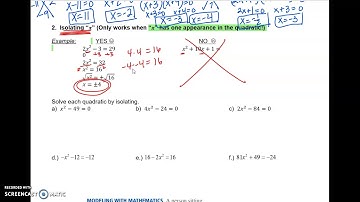 x-11=0 x-11=0
x=11 x=11
x+3=0 x+3=0
x=-3 x=-3
2. Isolating "x" (Only works when "x" has one appearance in the quadratic!)
Example: YES ☺ NO ☹
2x² − 3 = 29
+3 +3
2x² = 32
x² = 16
√x² = ±√16
x = ±4
4·4=16
-4·-4=16
Solve each quadratic by isolating.
a) x² − 49 = 0 b) 4x² − 24 = 0 c) 2x² − 84 = 0
d.) −x² − 12 = −12 e.) 16 − 2x² = 16 f.) 81x² + 49 = −24
RECORDED WITH
SCREENCAST MATIC
MODELING WITH MATHEMATICS A person sitting